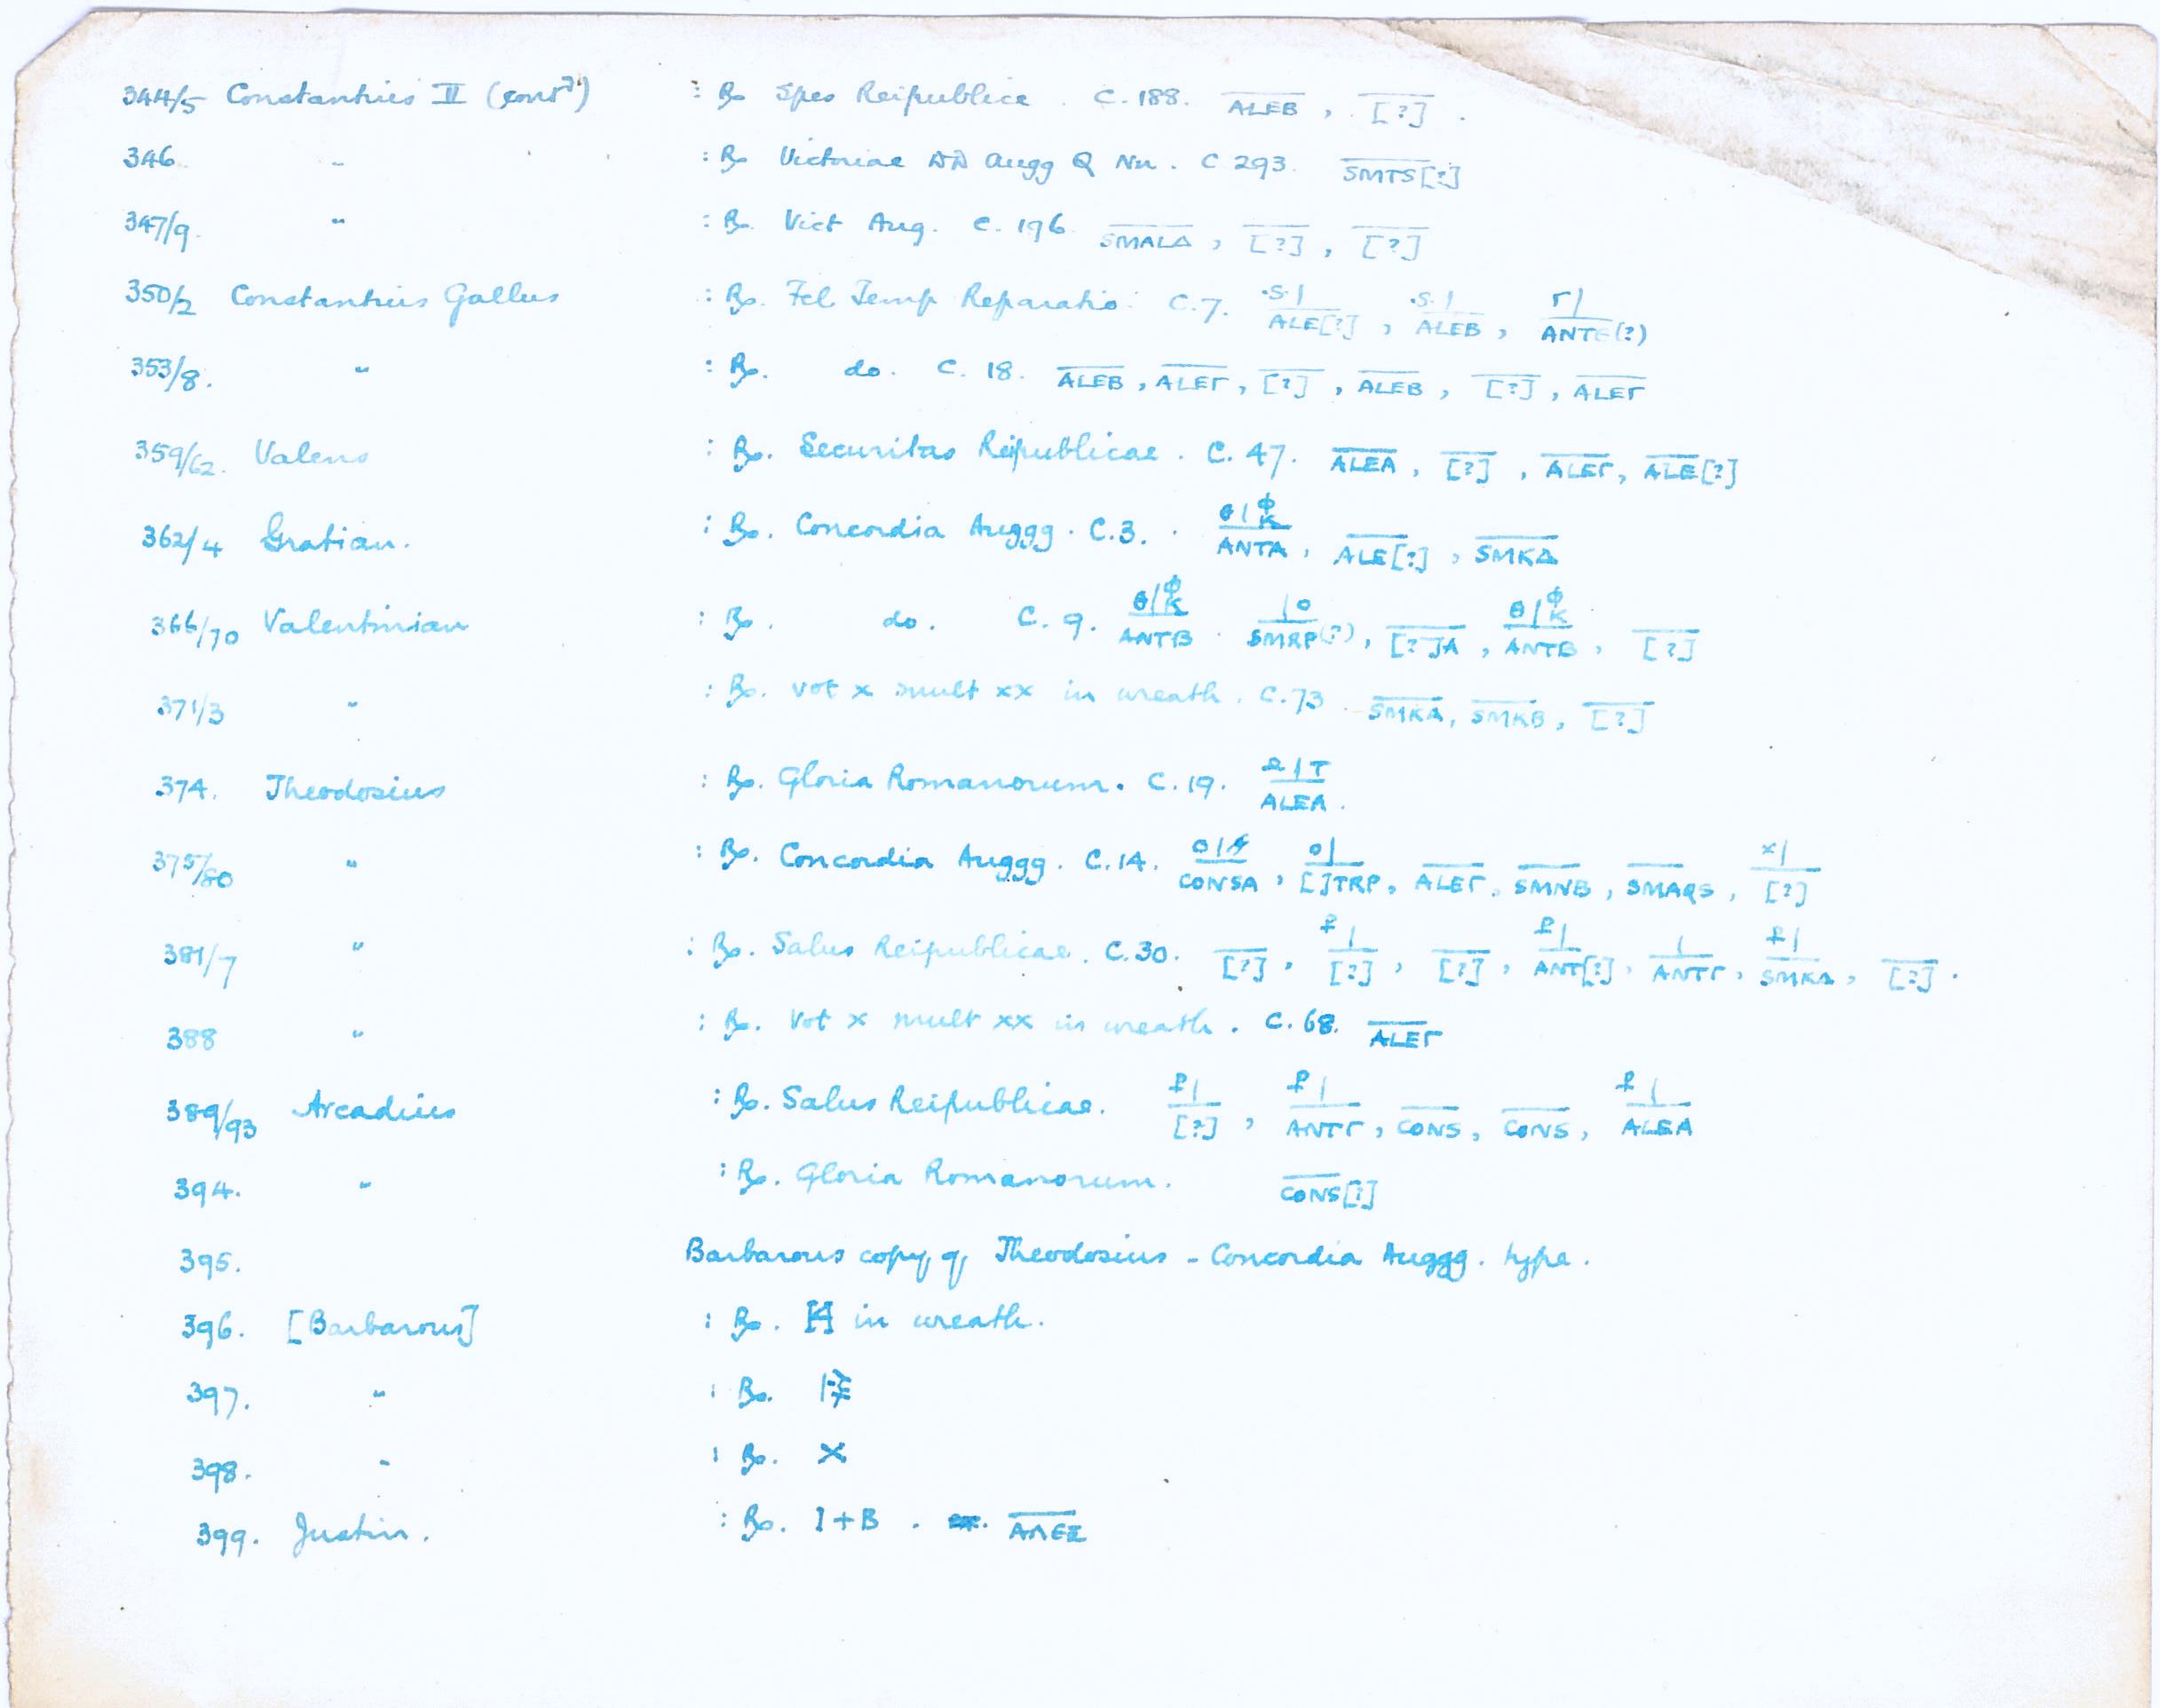 344/5 Constantius II (contd) : Rx Spes Reipublice . C. 188. ALEB , [?] .
346 " : Rx Victoriae DD Augg Q Nn . C 293. SMTS[?]
347/9. " : Rx. Vict Aug. C. 196 SMALΔ , [?] , [?]
350/2 Constantius Gallus : Rx. Fel Temp Reparatio. C. 7. .S.| ALE[?] , .S.| ALEB , Γ| ANTE(?)
353/8. " : Rx. do. C. 18. ALEB , ALEΓ , [?] , ALEB , [?] , ALEΓ
359/62. Valens : Rx. Securitas Reipublicae . C. 47. ALEA , [?] , ALEΓ, ALE[?]
362/4 Gratian. : Rx. Concordia Auggg . C.3. θ|Φ K ANTA , ALE[?] , SMKΔ
366/70 Valentinian : Rx . do . C. 9. θ|Φ K ANTB . |o SMRP(?) , [?]A , θ|Φ K ANTB , [?]
371/3 " : Rx. Vot x mult xx in wreath . C.73 . SMKA, SMKB , [?]
374. Theodosius : Rx. Gloria Romanorum . C. 19. |T ALEA .
375/80 " : Rx. Concordia Auggg . C.14. o| CONSA , o| []TRP, ALEΓ, SMNB , SMAQS , x| [?]
381/7 " : Rx. Salus Reipublicae . C.30. [?] , ⳨| [?] , [?] , ⳨| ANT[?] , | ANTΓ , ⳨| SMKΔ , [?] .
388 " : Rx. Vot x mult xx in wreath . C. 68. ALEΓ
389/93 Arcadius : Rx. Salus Reipublicae. ⳨| [?] , ⳨| ANTΓ , CONS , CONS , ⳨| ALEA
394. " : Rx. Gloria Romanorum . CONS[?]
395. Barbarous copy of Theodosius - Concordia Auggg . type .
396. [Barbarous] : Rx. in wreath.
397. " : Rx.
398. " : Rx. X
399. Justin . : Rx. I+B . ΑΛΕΞ